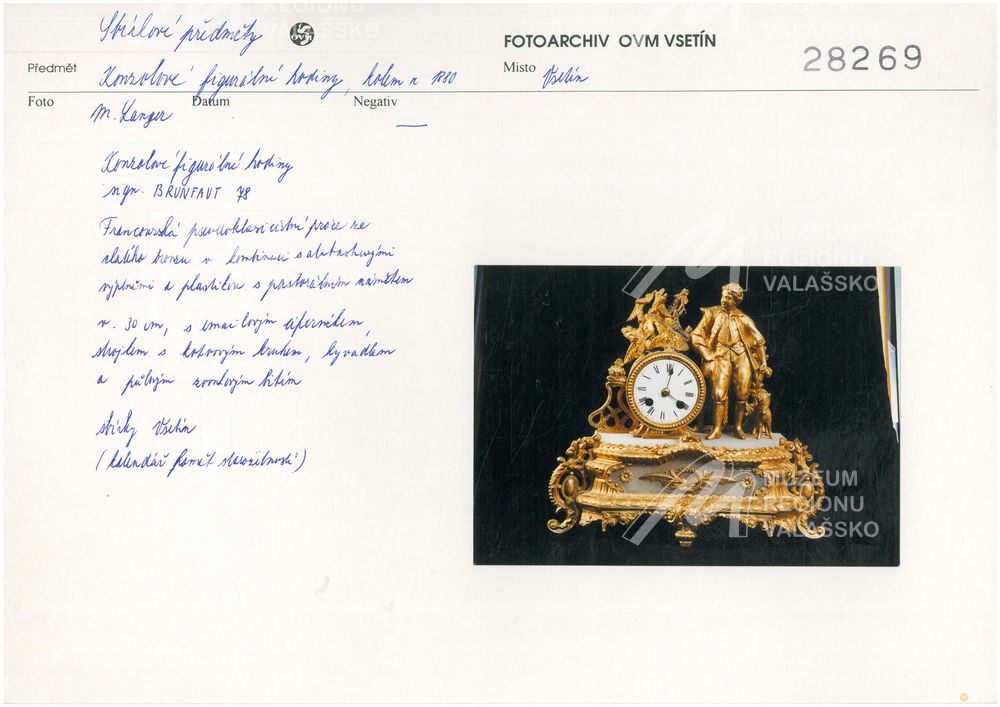 Sbírkové předměty
OVM
FOTOARCHIV OVM VSETÍN
28269
Předmět Konzolové figurální hodiny, kolem r. 1880
Místo Vsetín
Foto Datum Negativ
M. Langer —
Konzolové figurální hodiny
sign. BRUNFAUT 78
Francouzská pseudoklasicistní práce ze
zlatého bronzu v kombinaci s alabastrovými
výplněmi a plastikou s pastorálním námětem
v. 30 cm, s emailovým ciferníkem,
strojkem s kotvovým krokem, kyvadlem
a půlovým zvonkovým bitím
sbírky Vsetín
(kalendář Paměť starožitností)
REGIONU
VALAŠSKO
MUZEUM
REGIONU
VALAŠSKO